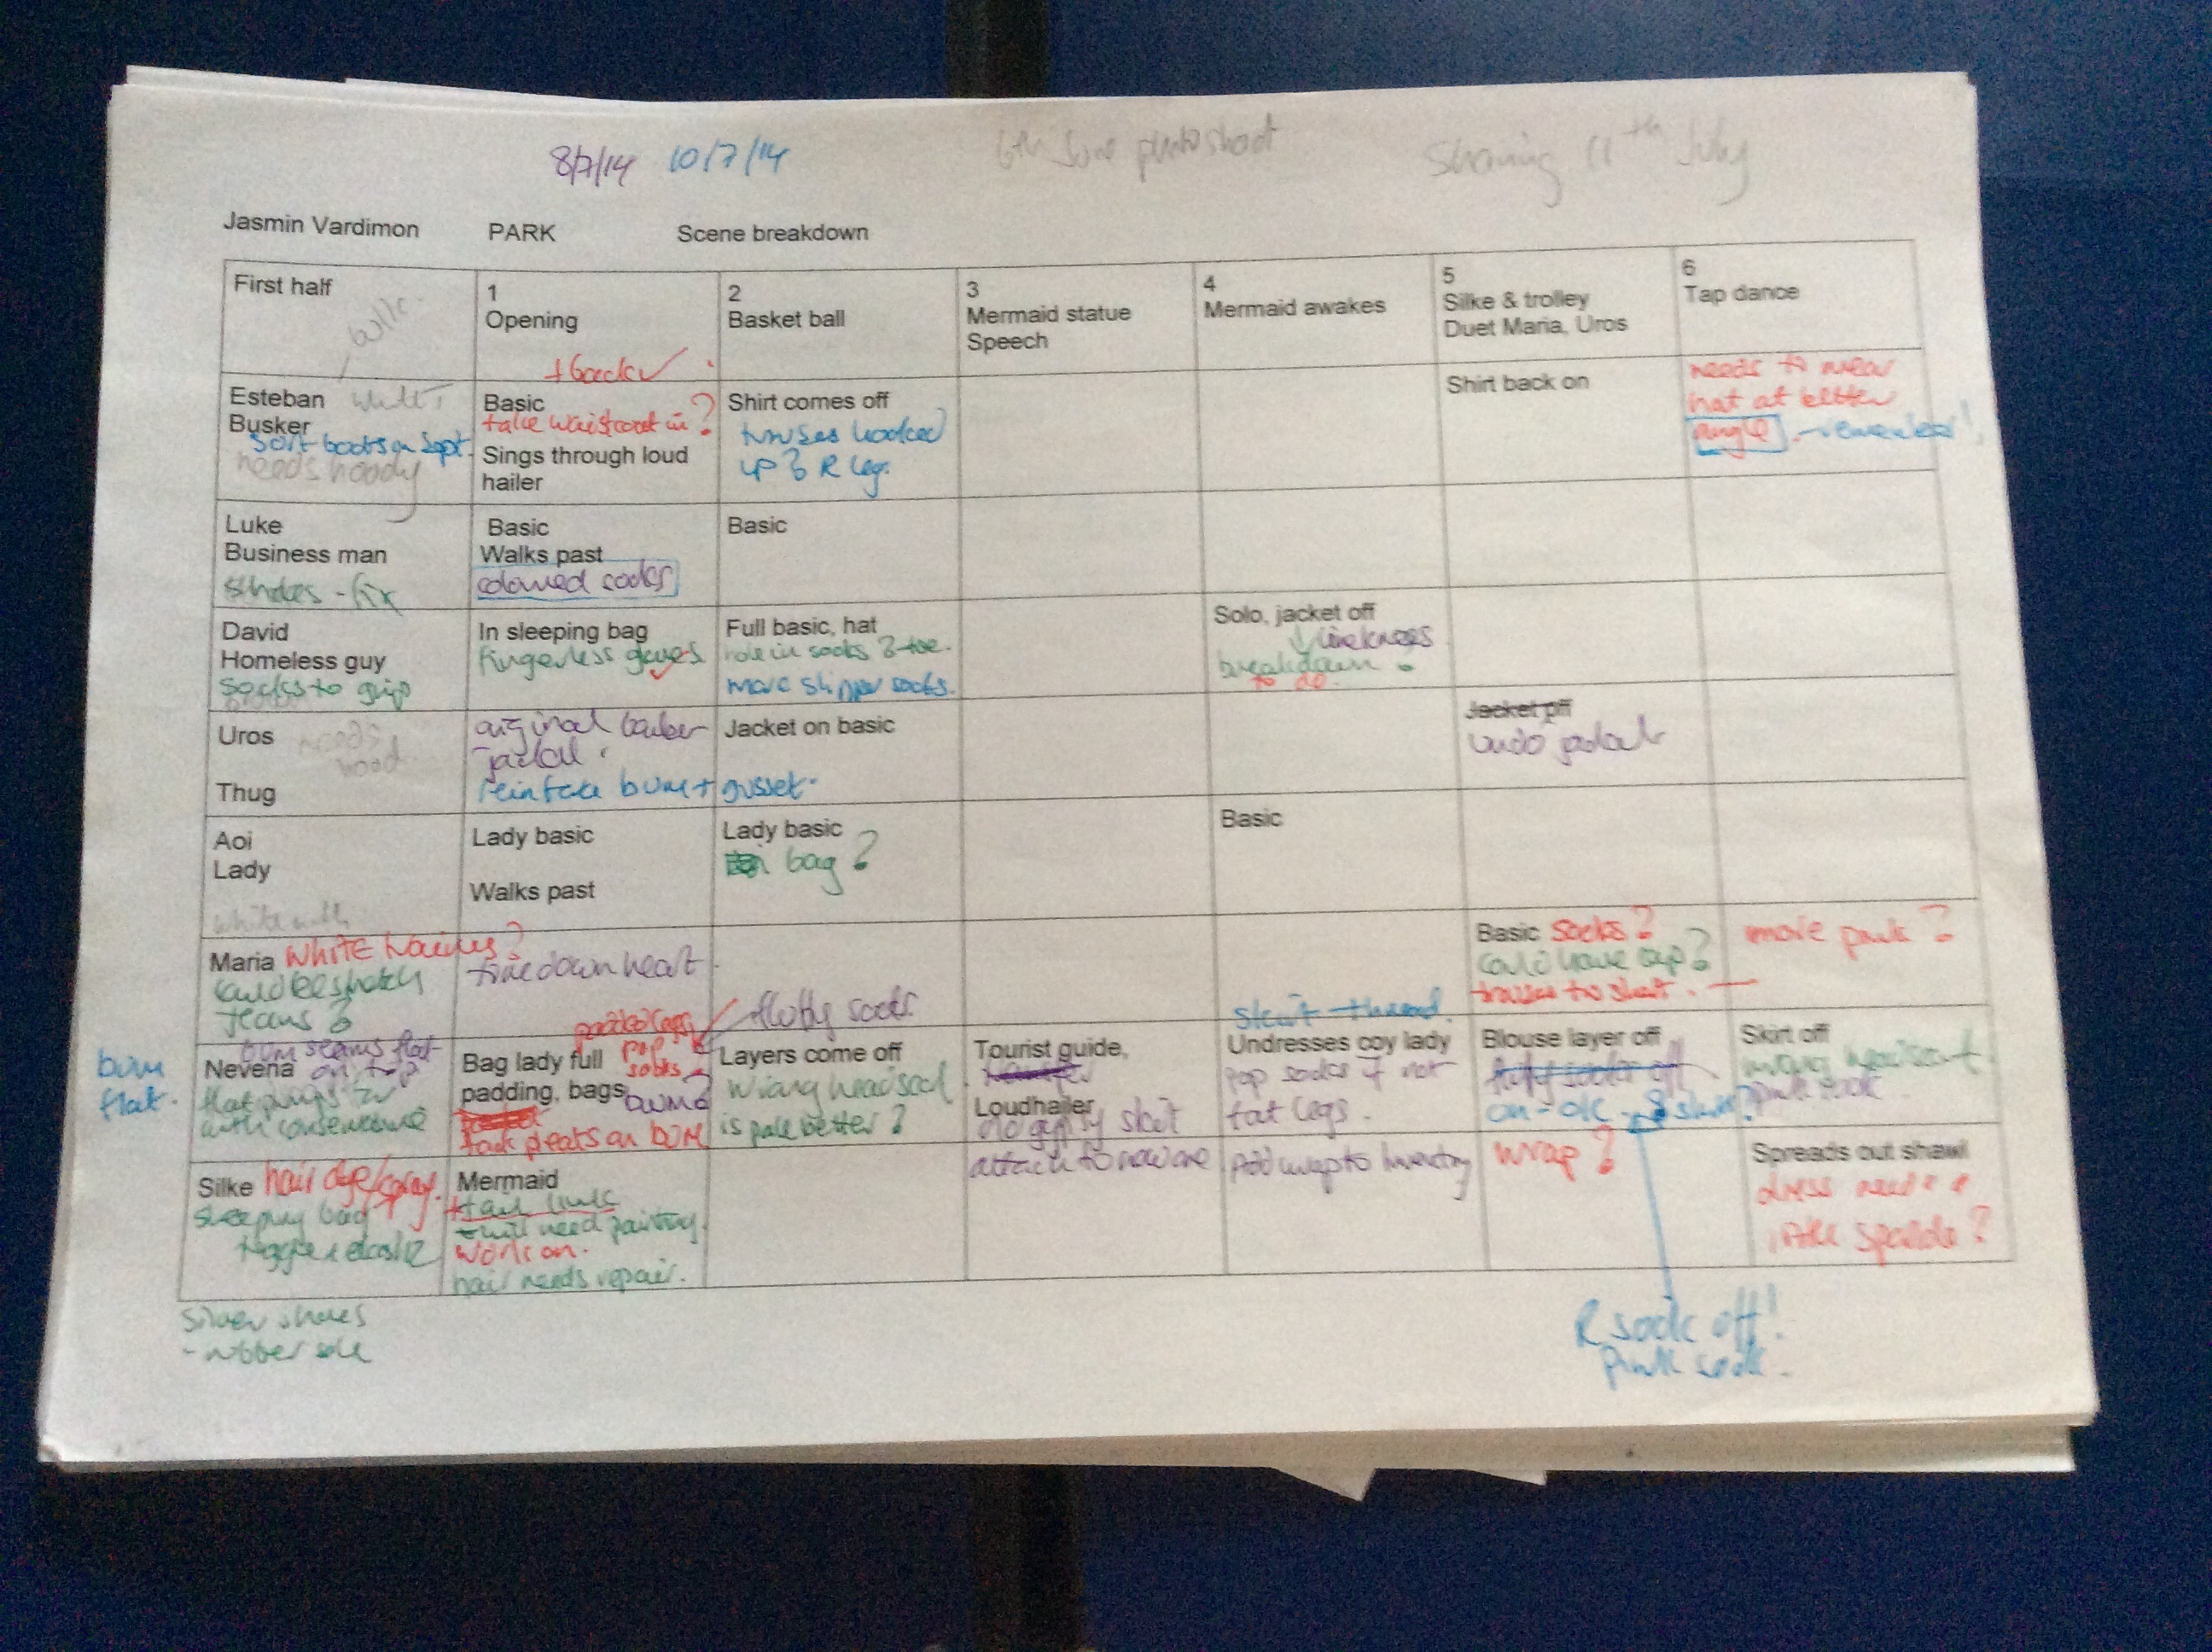 8/7/14 10/7/14 6th June photoshoot Sharing 11th July
Jasmin Vardimon PARK Scene breakdown
First half
1
Opening
2
Basket ball
3
Mermaid statue
Speech
4
Mermaid awakes
5
Silke & trolley
Duet Maria, Uros
6
Tap dance
Esteban
Busker
Sort boots in Sept.
needs hoody
Basic
take waistcoat in?
Sings through loud
hailer
Shirt comes off
up R leg.
Shirt back on
needs to wear
hat at better
angle - remember!
Luke
Business man
Basic
Walks past
coloured socks
Basic
David
Homeless guy
socks to grip
In sleeping bag
Fingerless gloves
Full basic, hat
hole in socks toe.
more slipper socks.
Solo, jacket off
line knees
breakdown
to do.
Uros needs
hood
Thug
original
jacket
bum + gusset
Jacket on basic
Jacket off
undo jacket
Aoi
Lady
Lady basic
Walks past
Lady basic
bag?
Basic
Maria White trainers?
jeans?
tone down heart
Basic socks?
could have cap?
more punk?
bum
flat.
Nevena
bum seams flat
on top
Bag lady full
padding, bags
pop
socks
bum?
tack pleats on bum
fluffy socks
Layers come off
is pale better?
Tourist guide,
Loudhailer
skirt
skirt - thread.
Undresses coy lady
pop socks if not
fat legs.
Blouse layer off
fluffy socks off
on - ok
Skirt off
pink sock
Silke hair dye/spray.
sleeping bag
bigger elastic
Mermaid
will need painting
work on.
hair needs repair.
attach to new one
Add wrap to inventory
wrap?
Spreads out shawl
dress
Silver shoes
- rubber sole
R sock off!
Pink sock.